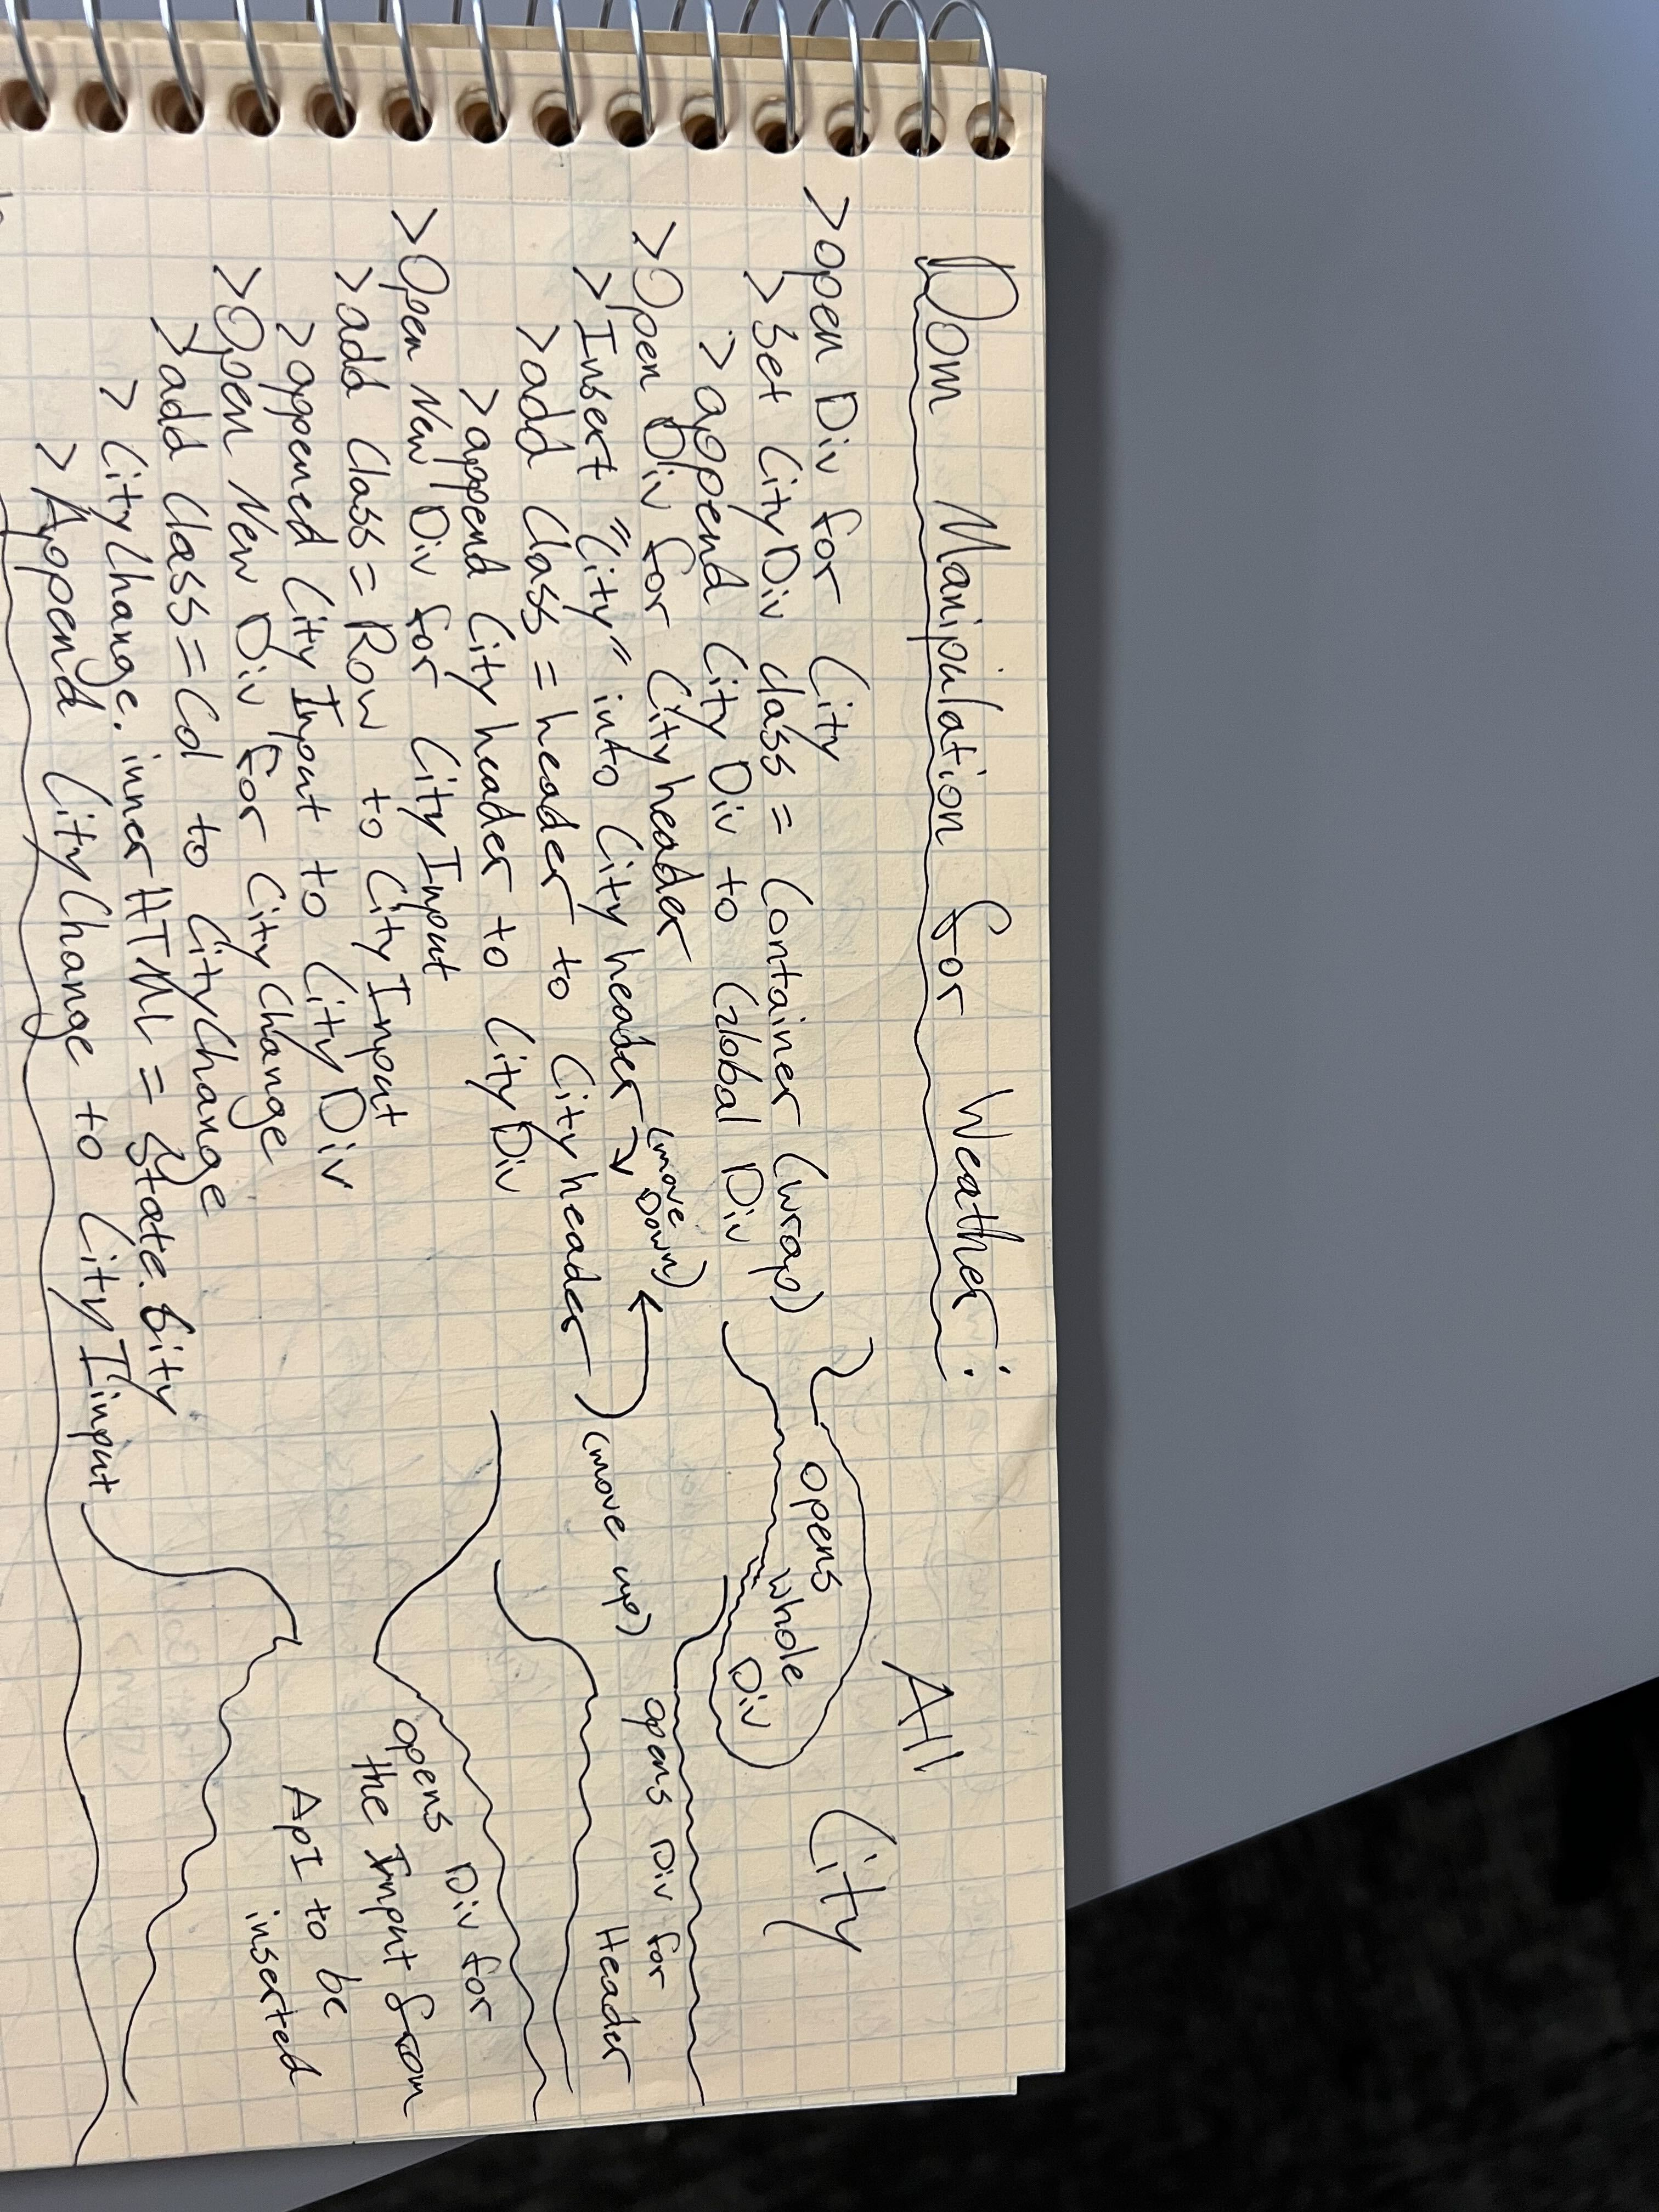 Dom Manipulation for Weather:
All City
>open Div for City
>Set City Div class = Container (wrap)
>append City Div to Global Div
opens whole Div
>Open Div for City header
>Insert "City" into City header (move Down)
>add Class = header to City header (move up)
>append City header to City Div
opens Div for Header
>Open New Div for City Input
>add Class = Row to City Input
>appened City Input to City Div
>Open New Div for City Change
>add Class = Col to City Change
>City Change. inner HTML = State.City
>Append City Change to City Iinput
opens Div for
the Input from
ApI to be
inserted